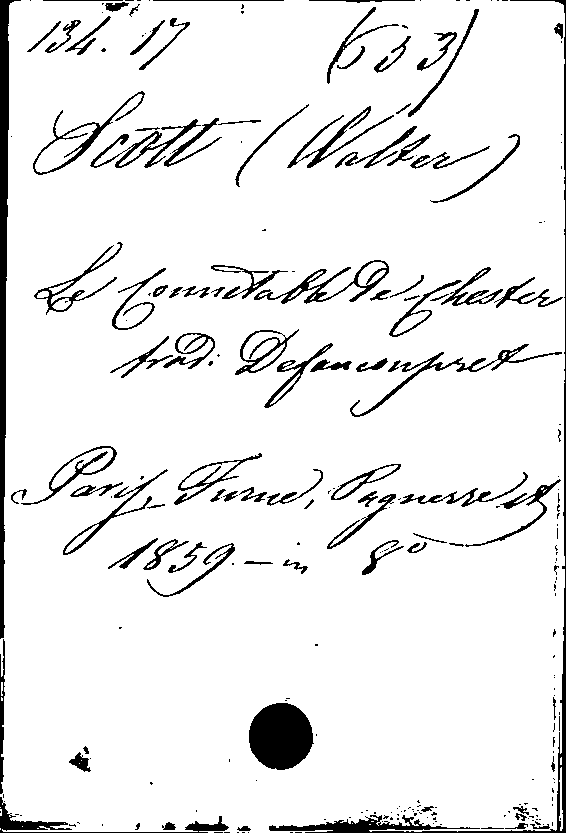 134. 17 (533)
Scott (Walter)
Le Connetable de Chester
trad. Defauconpret
Paris, Furne, Pagnerre et
1859. - in 8°